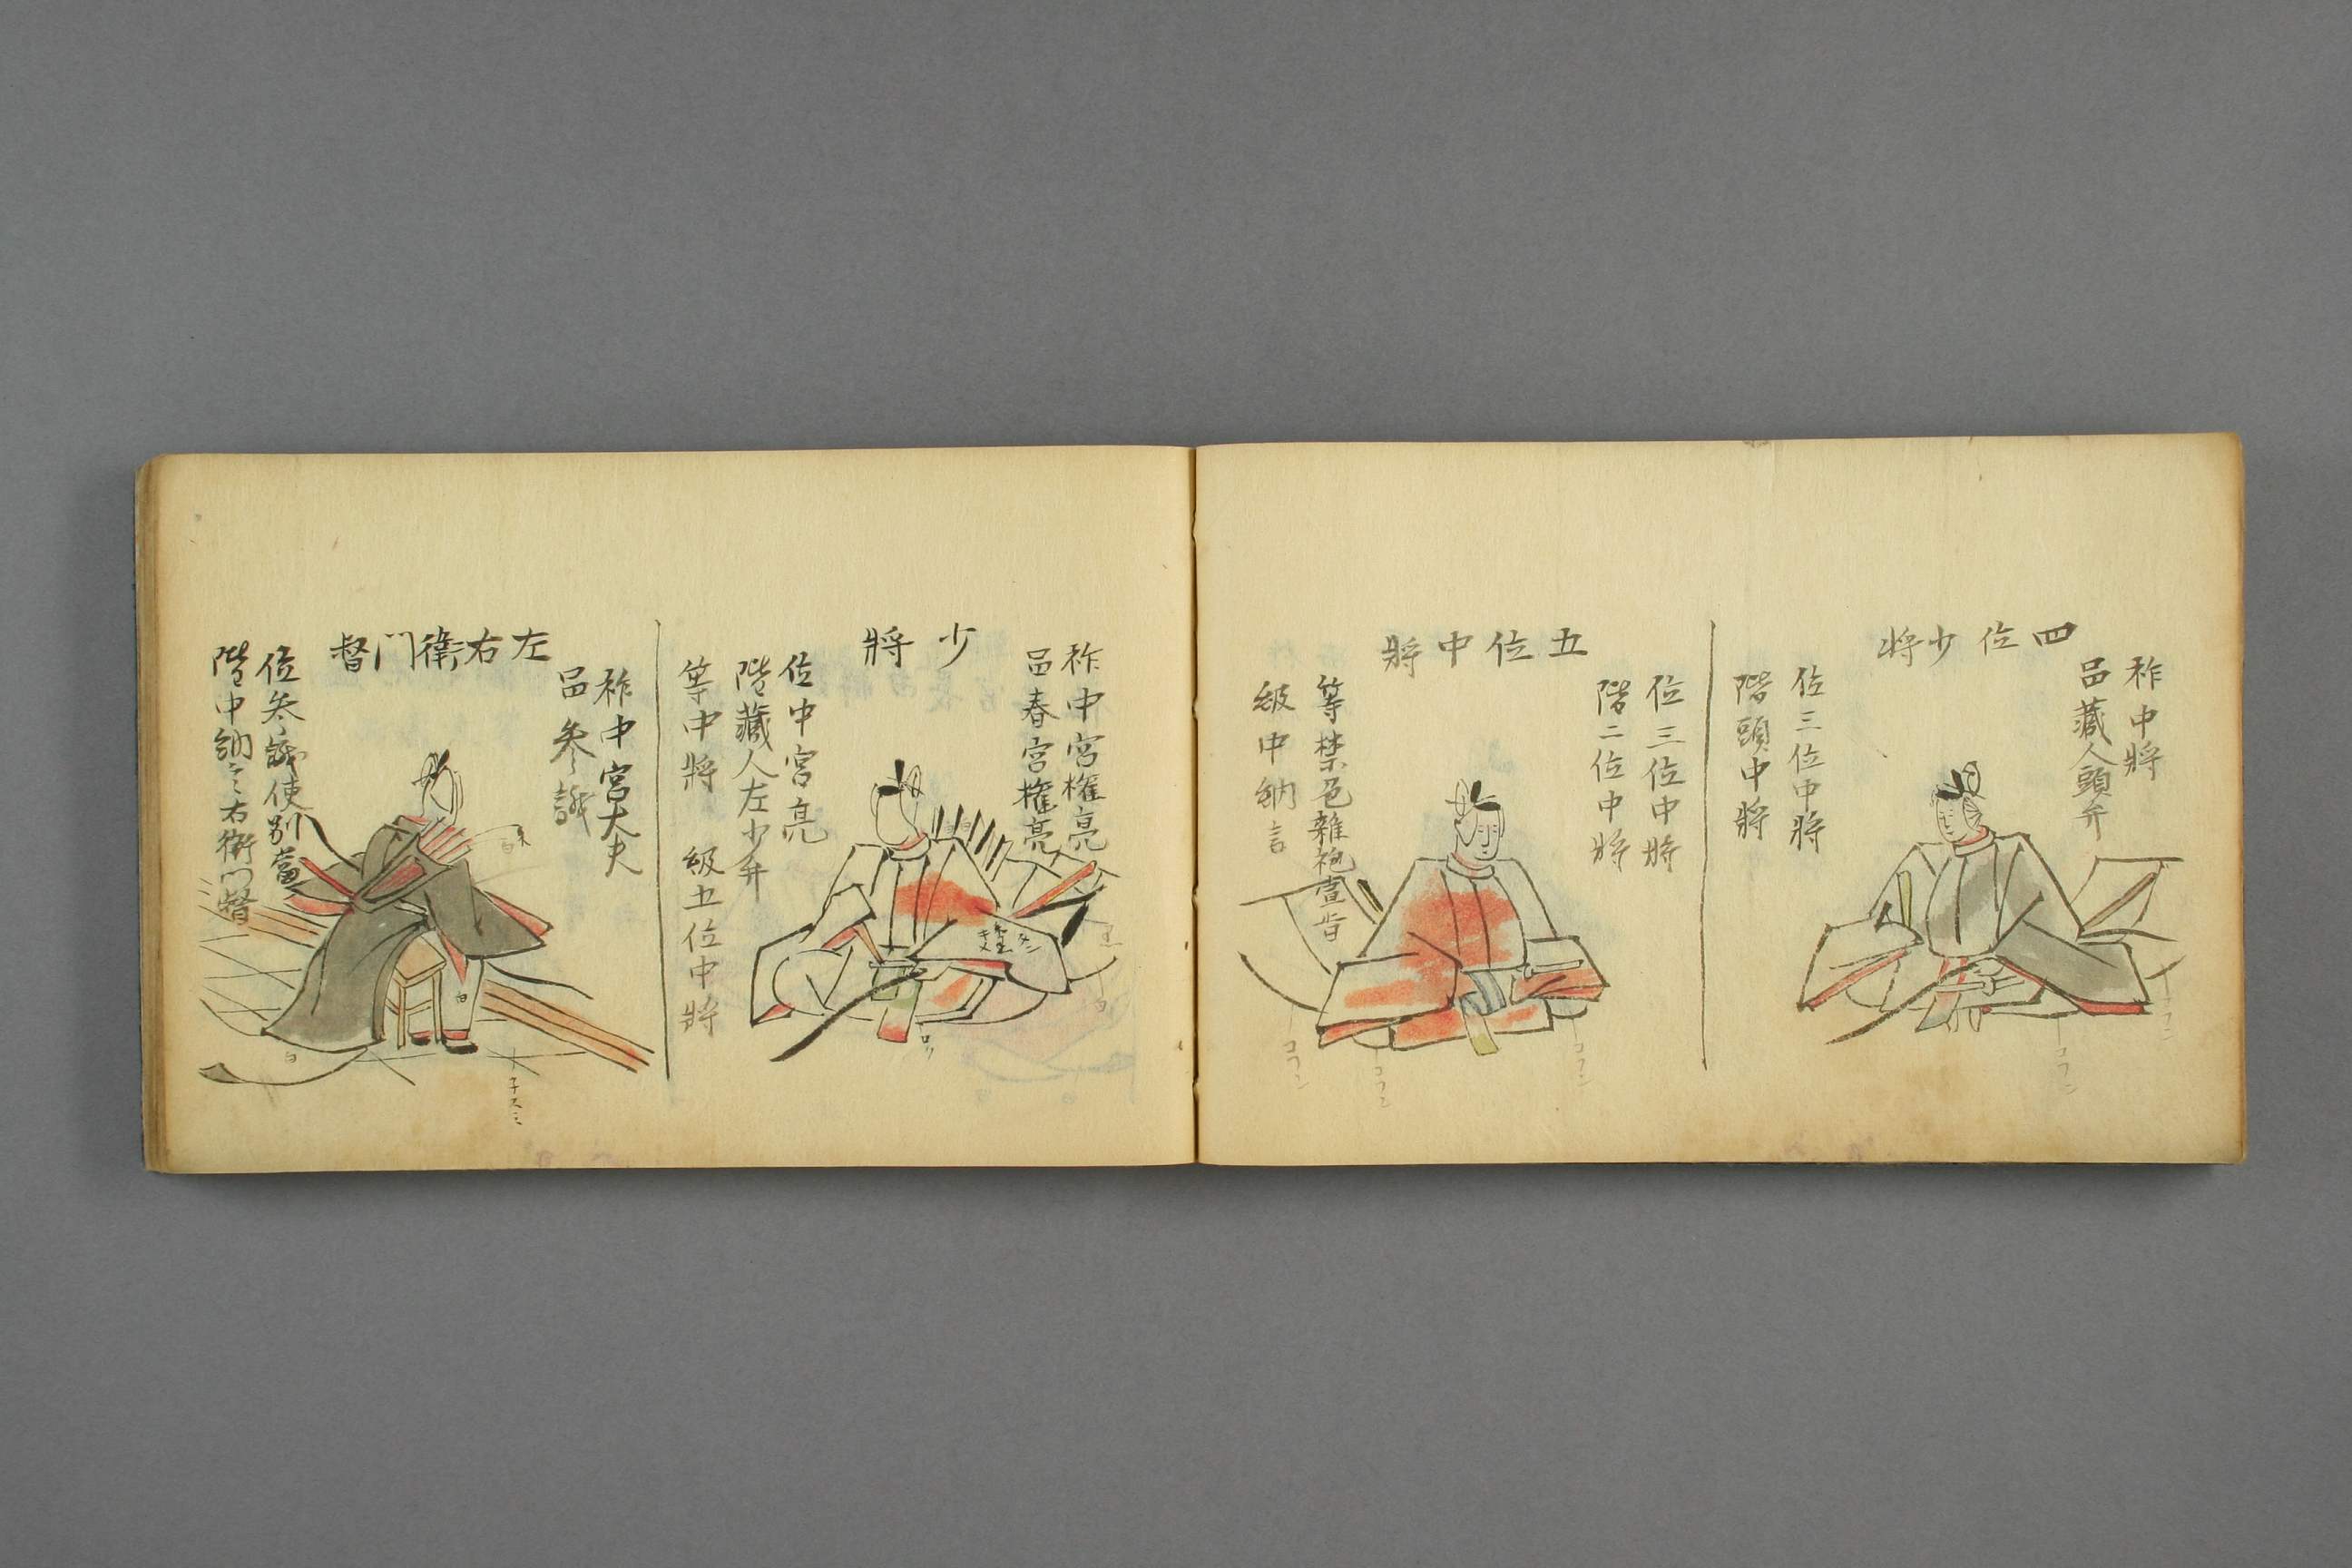 四位少將
祚中將
品藏人頭弁
位三位中將
階頭中將
五位中將
位三位中將
階二位中將
等禁色雜袍宣旨
級中納言
コフン
コフン
コフン
コフン
コフン
少將
祚中宮權亮
品春宮權亮
位中宮亮
階藏人左少弁
等中將
級五位中將
白
ロク
左右衛門督
祚中宮大夫
品参議
位参議使別當
階中納言右衛門督
白
白
子スミ